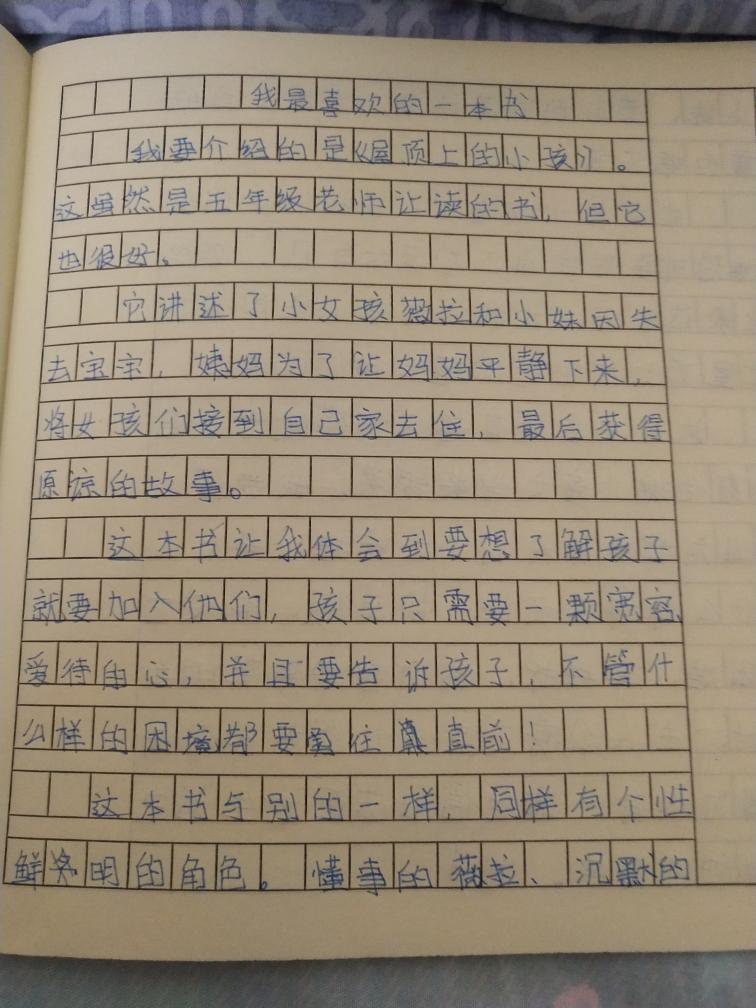 我最喜欢的一本书
我要介绍的是《屋顶上的小孩》。
这虽然是五年级老师让读的书，但它
也很好。
它讲述了小女孩薇拉和小妹因失
去宝宝，姨妈为了让妈妈平静下来，
将女孩们接到自己家去住，最后获得
原谅的故事。
这本书让我体会到要想了解孩子
就要加入他们，孩子只需要一颗宽容、
爱待的心，并且要告诉孩子，不管什
么样的困境都要往直前！
这本书与别的一样，同样有个性
鲜明的角色。懂事的薇拉、沉默的